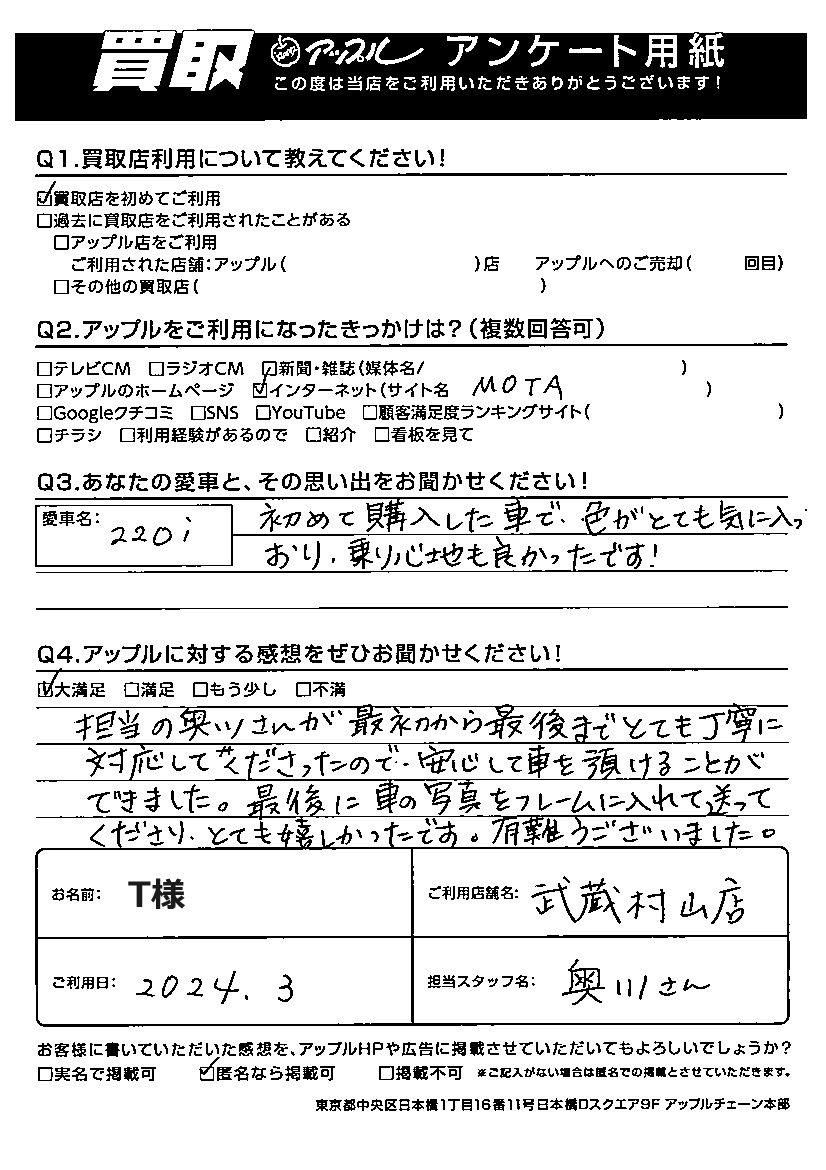 買取 アップル アンケート用紙
この度は当店をご利用いただきありがとうございます!
Q1.買取店利用について教えてください!
☑買取店を初めてご利用
□過去に買取店をご利用されたことがある
□アップル店をご利用
ご利用された店舗:アップル( )店 アップルへのご売却( 回目)
□その他の買取店( )
Q2.アップルをご利用になったきっかけは?(複数回答可)
□テレビCM □ラジオCM □新聞・雑誌(媒体名/ )
□アップルのホームページ ☑インターネット(サイト名 MOTA )
□Googleクチコミ □SNS □YouTube □顧客満足度ランキングサイト( )
□チラシ □利用経験があるので □紹介 □看板を見て
Q3.あなたの愛車と、その思い出をお聞かせください!
愛車名: 220i 初めて購入した車で、色がとても気に入っ
おり、乗り心地も良かったです!
Q4.アップルに対する感想をぜひお聞かせください!
☑大満足 □満足 □もう少し □不満
担当の奥川さんが最初から最後までとても丁寧に
対応してくださったので、安心して車を預けることが
できました。最後に車の写真をフレームに入れて送って
くださり、とても嬉しかったです。有難うございました。
お名前: T様 ご利用店舗名: 武蔵村山店
ご利用日: 2024.3 担当スタッフ名: 奥川さん
お客様に書いていただいた感想を、アップルHPや広告に掲載させていただいてもよろしいでしょうか?
□実名で掲載可 ☑匿名なら掲載可 □掲載不可 ※ご記入がない場合は匿名での掲載とさせていただきます。
東京都中央区日本橋1丁目16番11号日本橋Dスクエア9F アップルチェーン本部